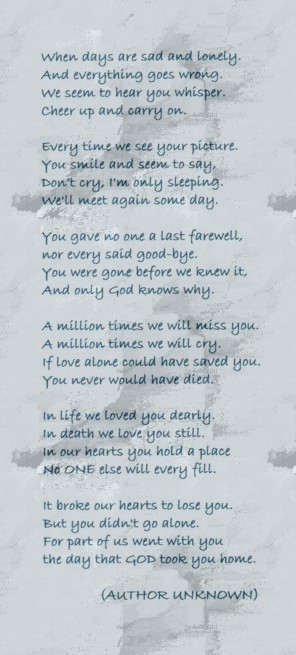 When days are sad and lonely.
And everything goes wrong.
We seem to hear you whisper.
Cheer up and carry on.
Every time we see your picture.
You smile and seem to say,
Don't cry, I'm only sleeping.
We'll meet again some day.
You gave no one a last farewell,
nor every said good-bye.
You were gone before we knew it,
And only God knows why.
A million times we will miss you.
A million times we will cry.
If love alone could have saved you.
You never would have died.
In life we loved you dearly.
In death we love you still.
In our hearts you hold a place
No ONE else will every fill.
It broke our hearts to lose you.
But you didn't go alone.
For part of us went with you
the day that GOD took you home.
(AUTHOR UNKNOWN)